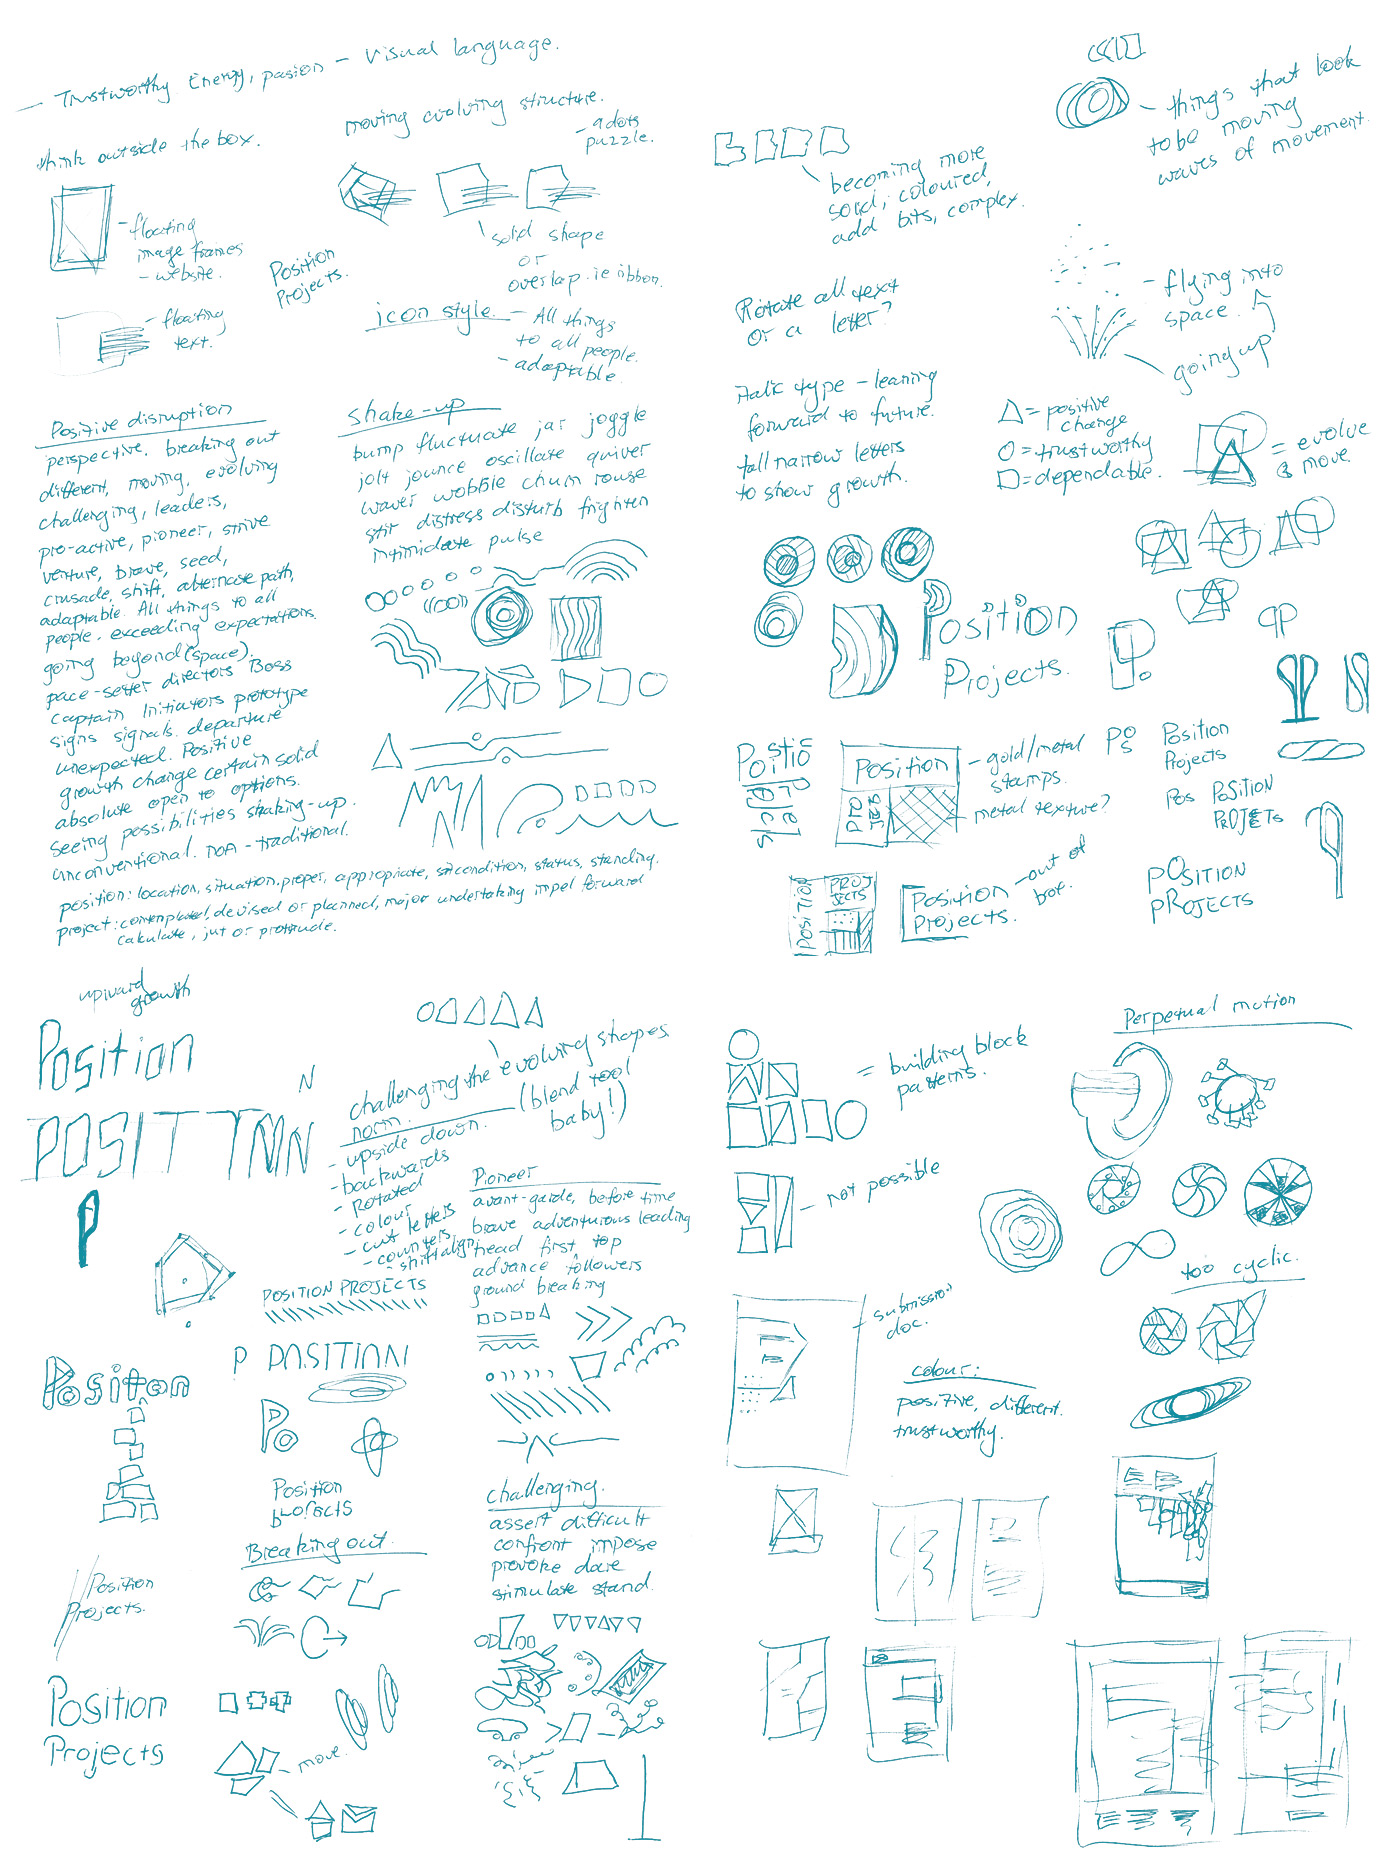 - Trustworthy Energy, pasion - visual language.
think outside the box.
moving evolving structure.
- adots
puzzle.
- floating
image frames
- website.
Position
Projects.
solid shape
or
overlap. ie ribbon.
- floating
text.
icon style. - All things
to all people.
- adaptable.
Positive disruption
perspective. breaking out
different, moving, evolving
challenging, leaders,
pro-active, pioneer, strive
venture, brave, seed,
crusade, shift, alternate path,
adaptable. All things to all
people. exceeding expectations.
going beyond (space).
pace-setter directors Boss
Captain Initiators prototype
signs signals. departure
unexpected. Positive
growth change certain solid
absolute open to options.
seeing possibilities shaking-up.
unconventional. non-traditional.
position: location, situation, proper, appropriate, condition, status, standing.
project: contemplated, devised or planned, major undertaking impel forward
calculate, jut or protrude.
shake-up
bump fluctuate jar joggle
jolt jounce oscillate quiver
waver wobble churn rouse
stir distress disturb frighten
intimidate pulse
- things that look
to be moving
waves of movement.
becoming more
solid, coloured,
add bits, complex.
Rotate all text
or a letter?
- flying into
space.
going up
Italic type - leaning
forward to future.
tall narrow letters
to show growth.
△ = positive
change
O = trustworthy
□ = dependable.
= evolve
& move.
Position
Projects.
P.
qp
Position
- gold/metal
stamps.
metal texture?
POS
Position
Projects
Pos POSITION
PROJECTS
Position
PROJECTS
Position
Projects.
- out of
box.
POSITION
PROJECTS
upward
growth
Position
N
POSIT
P
challenging the
norm.
- upside down.
- backwards
- Rotated
- colour
- cut letters
- counters,
- shift align.
evolving shapes.
(blend tool
baby!)
Pioneer
avant-garde, before time
brave adventurous leading
head first top
advance followers
ground breaking
POSITION PROJECTS
Positon
P POSITION
Po
Position
Projects
Breaking out.
Position
Projects.
Position
Projects
- move.
challenging.
assert difficult
confront impose
provoke dare
stimulate stand.
Perpetual motion
= building block
patterns.
- not possible
too cyclic.
- submission
doc.
colour:
positive, different.
trustworthy.